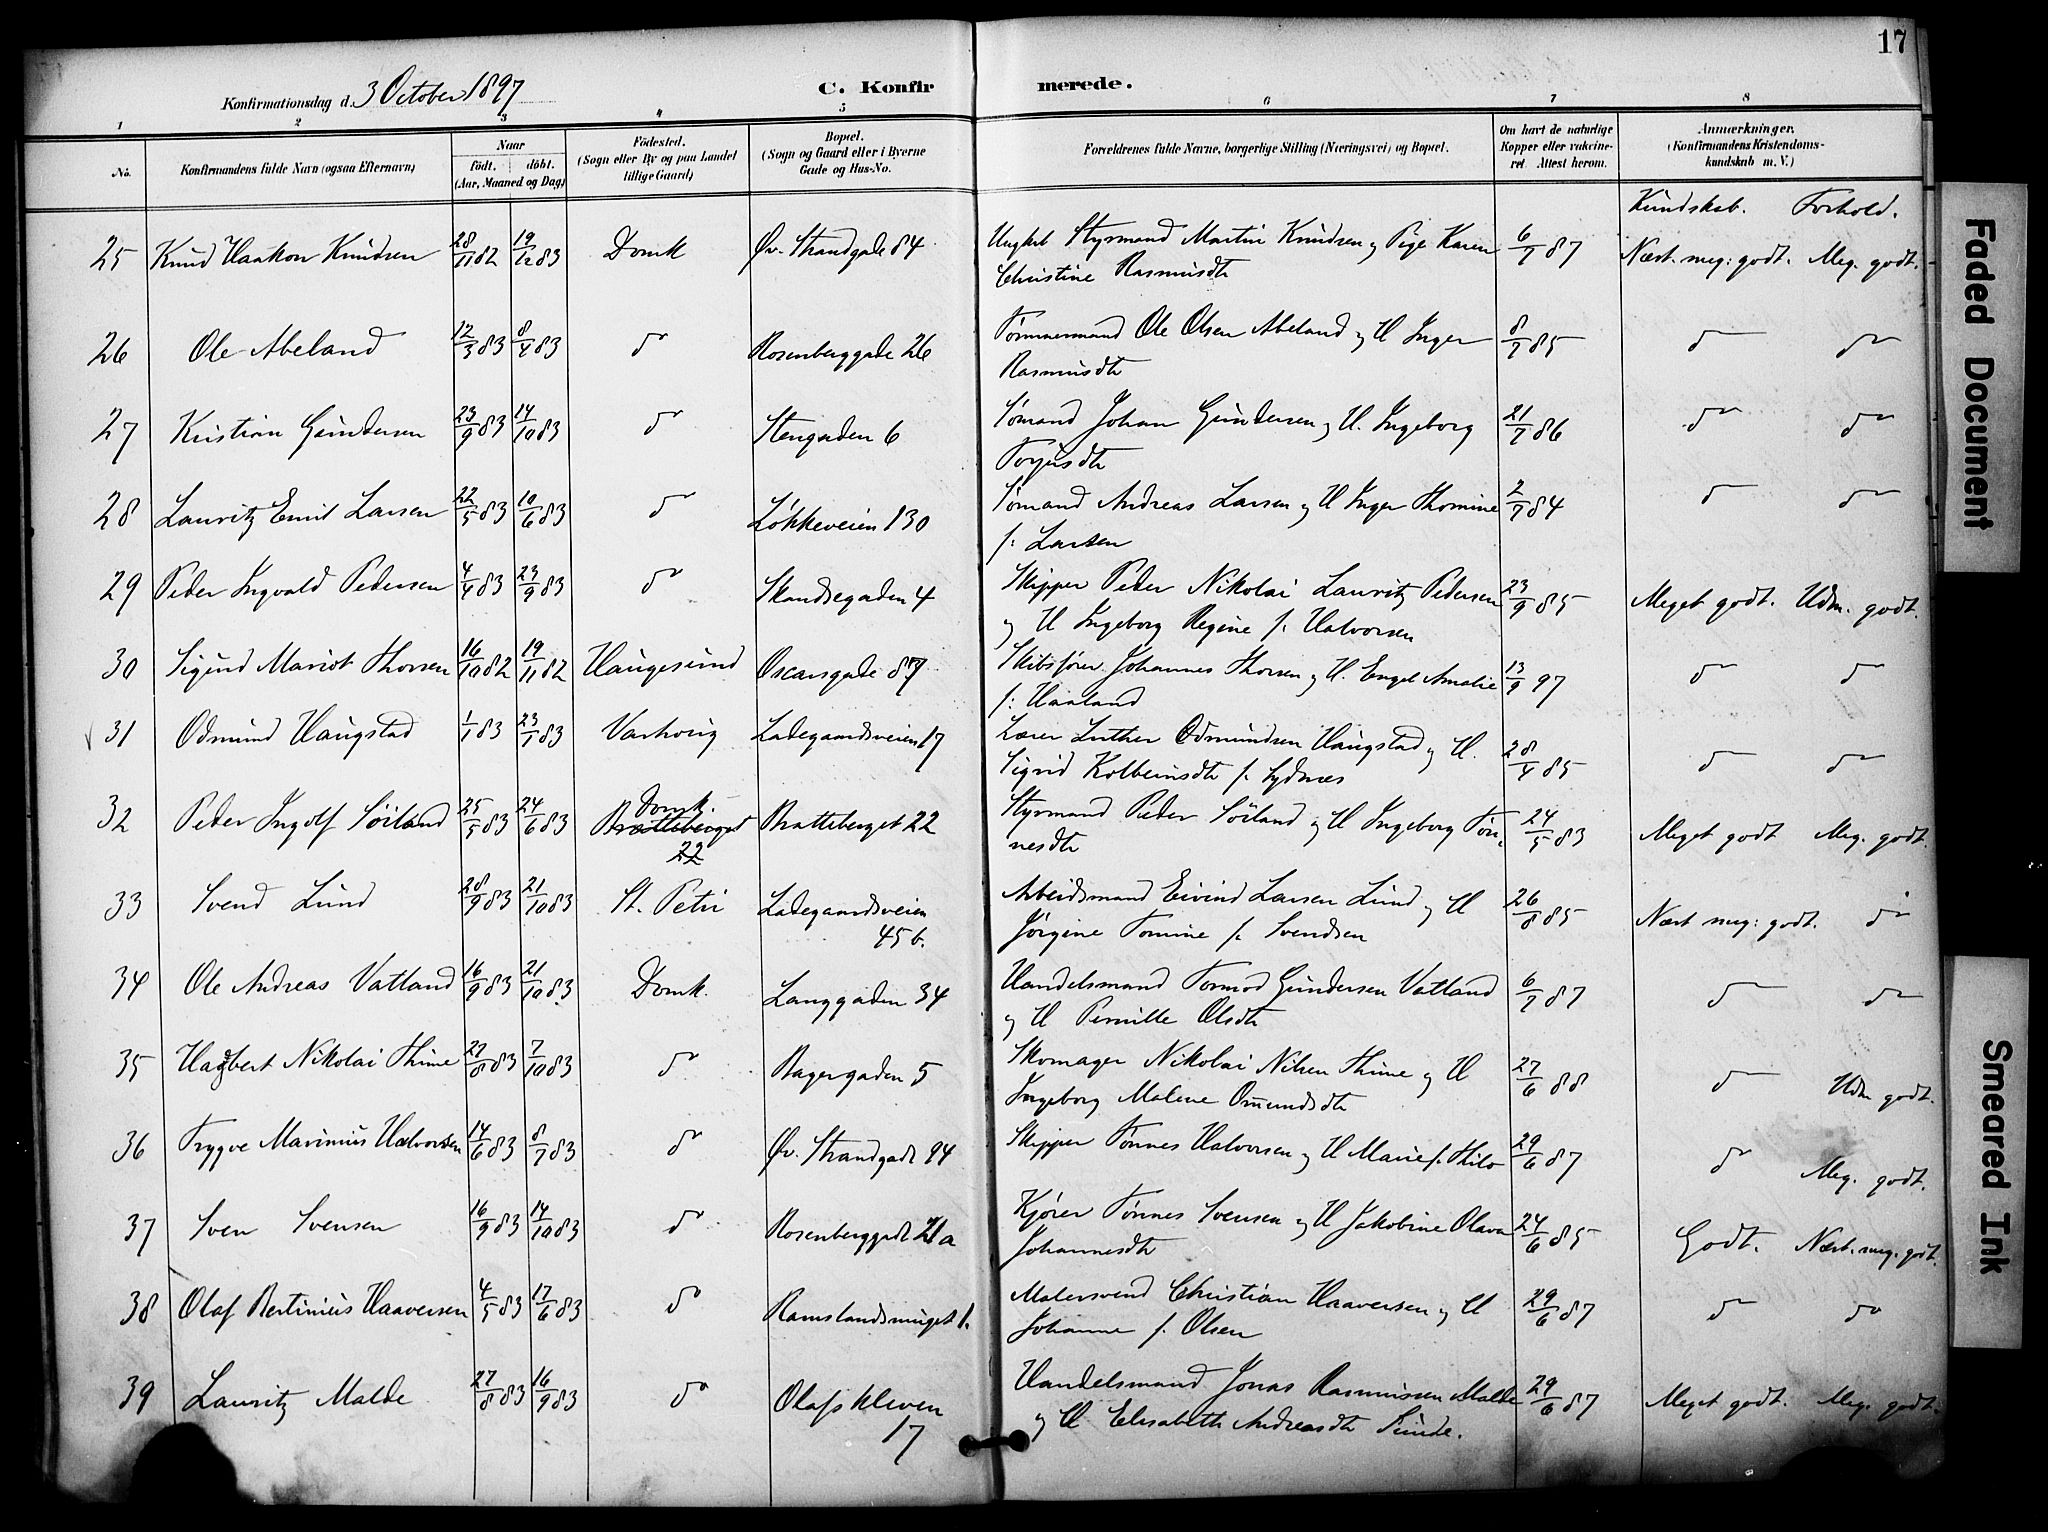 17
Konfirmationsdag d. 3 October 1897
C. Konfirmerede.
1 2 3 4 5 6 7 8
No. Konfirmandens fulde Navn (ogsaa Efternavn) Naar født. døbt. (Aar, Maaned og Dag) Fødested. (Sogn eller By og paa Landet tillige Gaard) Bopæl. (Sogn og Gaard eller i Byerne Gade og Hus-No. Forældrenes fulde Navne, borgerlige Stilling (Næringsvei) og Bopæl. Om havt de naturlige Kopper eller vakcineret. Attest herom. Anmærkninger. (Konfirmandens Kristendomskundskab m. V.)
Kundskab. Forhold.
25 Knud Haakon Knudsen 28/11 82 19/12 83 Domk Øv. Strandgade 84 Ungkel Styrmand Martin Knudsen og Pige Karen 6/7 87 Næst. meg: godt. Meg. godt.
Christine Rasmusdt
26 Ole Abeland 12/3 83 8/4 83 do Rosenberggade 26 Tømmermand Ole Olsen Abeland og H Inger 8/7 85 do do
Rasmusdt
27 Kristian Gundersen 23/9 83 14/10 83 do Stengaden 6 Sømand Johan Gundersen og H. Ingeborg 21/7 86 do do
Torjusdt
28 Lauritz Emil Larsen 22/5 83 10/6 83 do Løkkeveien 130 Sømand Andreas Larsen og H Inger Thomine 2/7 84 do do
f. Larsen
29 Peder Ingvald Pedersen 4/4 83 23/9 83 do Skandsegaden 4 Skipper Peder Nikolai Lauritz Pedersen 23/9 85 Meget godt. Udm. godt.
og H Ingeborg Regine f. Halvorsen
30 Sigurd Mariot Thorsen 16/10 82 19/11 82 Haugesund Oscarsgade 87 Skibsfører Johannes Thorsen og H. Engel Amalie 13/9 97 do do
f. Haaland
31 Odmund Haugstad 1/1 83 23/1 83 Varhoug Ladegaardsveien 17 Lærer Luther Odmundsen Haugstad og H. 28/4 85 do do
Sigrid Kolbeinsdt f. Lydnæs
32 Peder Ingolf Söiland 25/5 83 24/6 83 Domk. Bratteberget 22 Bratteberget 22 Styrmand Peder Söiland og H Ingeborg Tøn- 24/5 83 Meget godt Meg. godt.
nesdt
33 Svend Lund 28/9 83 21/10 83 St. Petri Ladegaardsveien 45 b. Arbeidsmand Eivind Larsen Lund og H 26/8 85 Næst meg: godt. do
Jørgine Tomine f. Svendsen
34 Ole Andreas Vatland 16/9 83 21/10 83 Domk. Langgaden 34 Handelsmand Tormod Gundersen Vatland 6/7 87 do do
og H Pernille Olsdt
35 Hagbert Nikolai Thime 27/8 83 7/10 83 do Bagergaden 5 Skomager Nikolai Nilsen Thime og H 27/6 88 do Udm godt.
Ingeborg Malene Omundsdt
36 Trygve Marinius Halvorsen 14/6 83 8/7 83 do Øv. Strandgade 94 Skipper Tönnes Halvorsen og H Marie f. Thilo 29/6 87 do Meg. godt.
37 Sven Svensen 16/9 83 14/10 83 do Rosenberggade 21 a Kjører Tönnes Svensen og H Jakobine Olava 24/6 85 Godt. Næst. meg. godt.
Johannesdt
38 Olaf Bertinius Haaversen 4/5 83 17/6 83 do Ramslandsmuget 1. Malersvend Christian Haaversen og H 29/6 87 do do
Johanne f. Olsen
39 Lauritz Malde 27/8 83 16/9 83 do Olafskleven 17 Handelsmand Jonas Rasmussen Malde 29/6 87 Meget godt. Meg. godt.
og H Elisabeth Andreasdt Sunde.
Faded Document
Smeared Ink